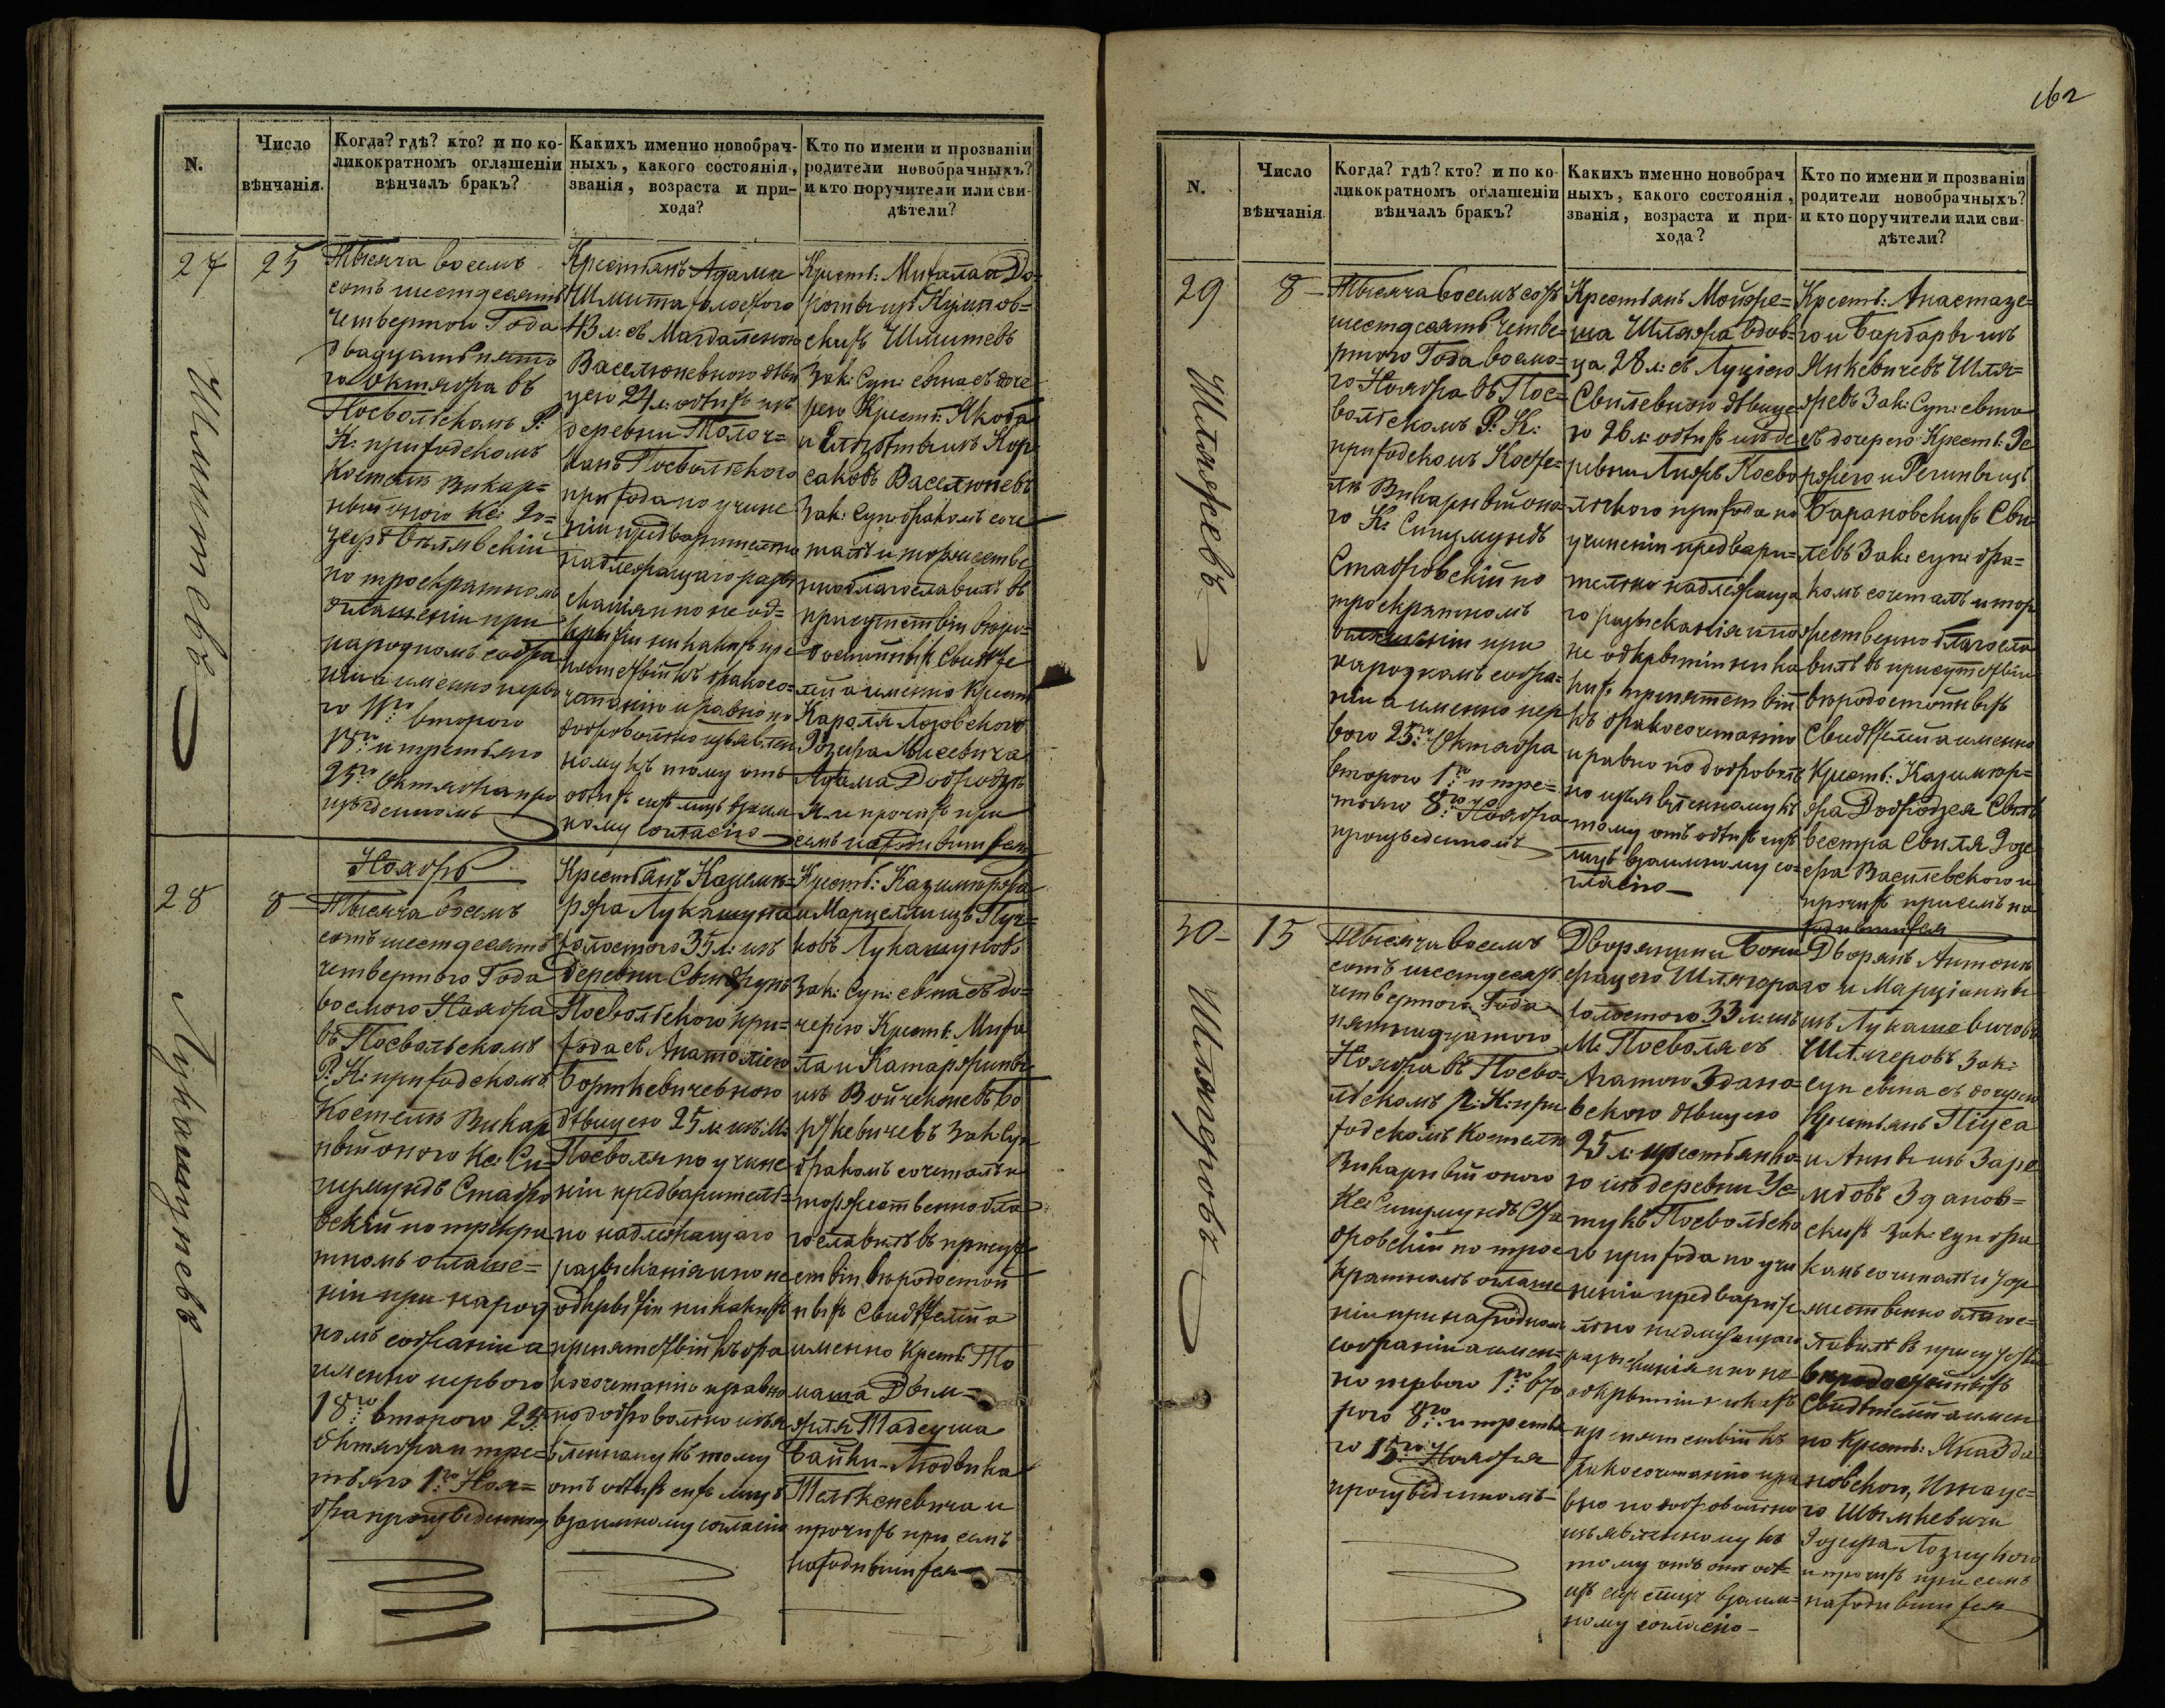 162
N.
Число
вѣнчанія.
Когда? гдѣ? кто? и по ко-
ликократномъ оглашеніи
вѣнчалъ бракъ?
Какихъ именно новобрач-
ныхъ, какого состоянія,
званія, возраста и при-
хода?
Кто по имени и прозванію
родители новобрачныхъ?
и кто поручители или сви-
дѣтели?
27
25
Шмитевъ
Тысяча восемь
сотъ шестдесятъ
четвертого Года
двадцать пято
го Октября въ
Посвольскомъ Р.
К. приходскомъ
Костелѣ Викар=
ный оного Кс: Іо=
зефъ Белявскій
по троекратномъ
оглашеніи при
народномъ собра
ніи а именно перво
го 11го второго
18го и третьяго
25го Октября про
изведенномъ
Крестьянъ Адама
Шмита холостого
43 л: съ Магдаленою
Васелюневною дѣви
цею 24 л: обѣихъ изъ
деревни Толоч=
канъ Посвольского
прихода по учине
ніи предварительно
надлежащаго розы
сканія и по не от=
крытіи никакихъ пре
пятствій къ бракосо=
четанію и равно по
добровольно изъявлен
ному къ тому отъ
обѣихъ сихъ лицъ взаим
ному согласію
Крест: Михала и До=
роты изъ Кумпов=
скихъ Шмитевъ
Зак: Суп: сына съ доче
рею Крест: Якоба
и Елизбеты изъ Кор
саковъ Васелюневъ
Зак: Суп: бракомъ соче
талъ и торжестве
нно благославилъ въ
присутствіи вѣро=
достойныхъ Свидѣте
лей а именно Крест
Кароля Лозовского
Іозефа Мисевича
Адама Доброд
и прочихъ при
семъ находившихся
28
8
Лукашуневъ
Ноябрь
Тысяча восемь
сотъ шестдесятъ
четвертого Года
восмого Ноября
въ Посвольскомъ
Р. К. приходскомъ
Костелѣ Викар
ный оного Кс: Си=
гизмундъ Стабро
вскій по троекра
тномъ оглаше=
ніи при народ
номъ собраніи а
именно первого
18го второго 25го
Октября и тре=
тьяго 1го Ноя=
бря произведенномъ
Крестьянъ Казими=
ржа Лукашуна
холостого 35 л: изъ
деревни
Посвольского при=
хода съ Анатоліею
Борткевичевною
дѣвицею 25 л: изъ М.
Посволя по учине
ніи предваритель=
но надлежащаго
розысканія и по не
открытіи никакихъ
препятствій къ бра
косочетанію и равно
по добровольно изъя
вленному къ тому
отъ обѣихъ сихъ лицъ
взаимному согласію
Крест: Казимиржа
и Марцелли изъ Пуч=
ковъ Лукашуновъ
Зак: Суп: сына съ до=
черею Крест: Миха
ла и Катаржины
изъ Войчеконевъ Бо
рткевичевъ Зак Суп
бракомъ сочеталъ и
торжественно бла
гославилъ въ присут
ствіи вѣродостой
ныхъ Свидѣтелей а
именно Крест: То
маша Двым=
жиля Тадеуша
Байки Людвика
Телькеневича и
прочихъ при семъ
находившихся
N.
Число
вѣнчанія.
Когда? гдѣ? кто? и по ко-
ликократномъ оглашеніи
вѣнчалъ бракъ?
Какихъ именно новобрач
ныхъ, какого состоянія,
званія, возраста и при-
хода?
Кто по имени и прозванію
родители новобрачныхъ?
и кто поручители или сви-
дѣтели?
29
8
Шляжевъ
Тысяча восемъ сотъ
шестдесятъ четве=
ртого Года восмо=
го Ноября въ Пос=
вольскомъ Р: К:
приходскомъ Косте=
лѣ Викарный оно
го К: Сигизмундъ
Стабровскій по
троекратномъ
оглашеніи при
народномъ собра=
ніи а именно пер
вого 25го Октября
второго 1го и тре=
тьяго 8го Ноября
произведенномъ
Крестьянъ Мойже=
ша Шляжа вдов=
ца 28 л: съ Луціею
Свилевною дѣвице
ю 26 л: обѣихъ изъ де
ревни Посво
льского прихода по
учиненіи предвари=
тельно надлежаща
го розысканія и по
не открытіи ника
кихъ препятствій
къ бракосочетанію
и равно по доброволь
но изъявленному къ
тому отъ обѣихъ сихъ
лицъ взаимному со=
гласію
Крест: Анастазе=
го и Барбары изъ
Янкевичевъ Шля=
жевъ Зак: Суп: сына
съ дочерею Крест: Іо
зефего и Регины изъ
Барановскихъ Сви
левъ Зак: суп: бра=
комъ сочеталъ и тор
жественно благосла
вилъ въ присутствіи
вѣродостойныхъ
Свидѣтелей а именно
Крест: Казимир=
жа Добродзея Силь
вестра Свиля Іозе
фа Василевского и
прочихъ при семъ на
ходившихся
30
15
Шлягеровъ
Тысяча восемь
сотъ шестдесятъ
четвертого Года
пятнадцатого
Ноября въ Посво=
льскомъ Р: К: при
ходскомъ Костелѣ
Викарный оного
Кс: Сигизмундъ Ста
бровскій по трое
кратномъ оглаше
ніи при народномъ
собраніи а имен=
но первого 1го вто
рого 8го и третья
го 15го Ноября
произведенномъ
Дворянина Бони
фацего Шлягера
холостого 33 л: изъ
М. Посволя съ
Агатою Здано=
вскою дѣвицею
25 л: крестьянко=
ю изъ деревни
Посвольско
го прихода по учи
неніи предварите
льно надлежащаго
розысканія и по не
открытіи никакихъ
препятствій къ
бракосочетанію и ра
вно по добровольно
изъявленному къ
тому отъ обѣ=
ихъ сихъ лицъ взаим=
ному согласію
Дворянъ Антони
го и Марціанны
изъ Лукашевичовъ
Шлягеровъ Зак:
суп сына съ дочерею
Крестьянъ Піуса
и Анны изъ Заре
мбовъ Зданов=
скихъ Зак: суп бра
комъ сочеталъ и тор
жественно благос=
лавилъ въ присутстви
вѣродостойныхъ
Свидѣтелей а имен
но Крест: Яна Зда
новского, Игнаце=
го Шымкевича
Іозефа Лозицкого
и прочихъ при семъ
находившихся